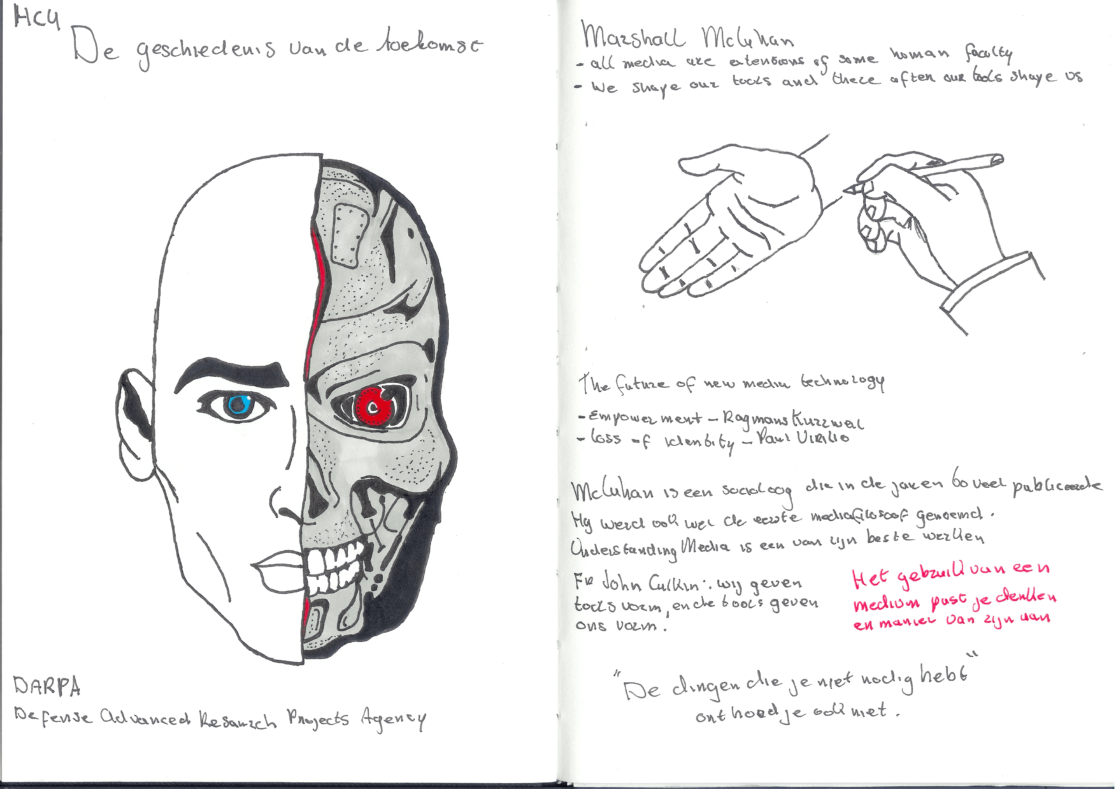 HC4
De geschiedenis van de toekomst
DARPA
Defense Advanced Research Projects Agency
Marshall McLuhan
- all media are extensions of some human faculty
- we shape our tools and there after our tools shape us
The future of new media technology
- Empowerment - Kurzwal
- Loss of identity - Paul Virilio
McLuhan is een socioloog die in de jaren 60 veel publiceerde
Hij werd ook wel de eerste mediafilosoof genoemd.
Understanding Media is een van zijn beste werken
Fr John Culkin: wij geven
tools vorm, en de tools geven
ons vorm.
Het gebruik van een
medium past je denken
en manier van zijn aan
"De dingen die je niet nodig hebt"
onthoud je ook niet.